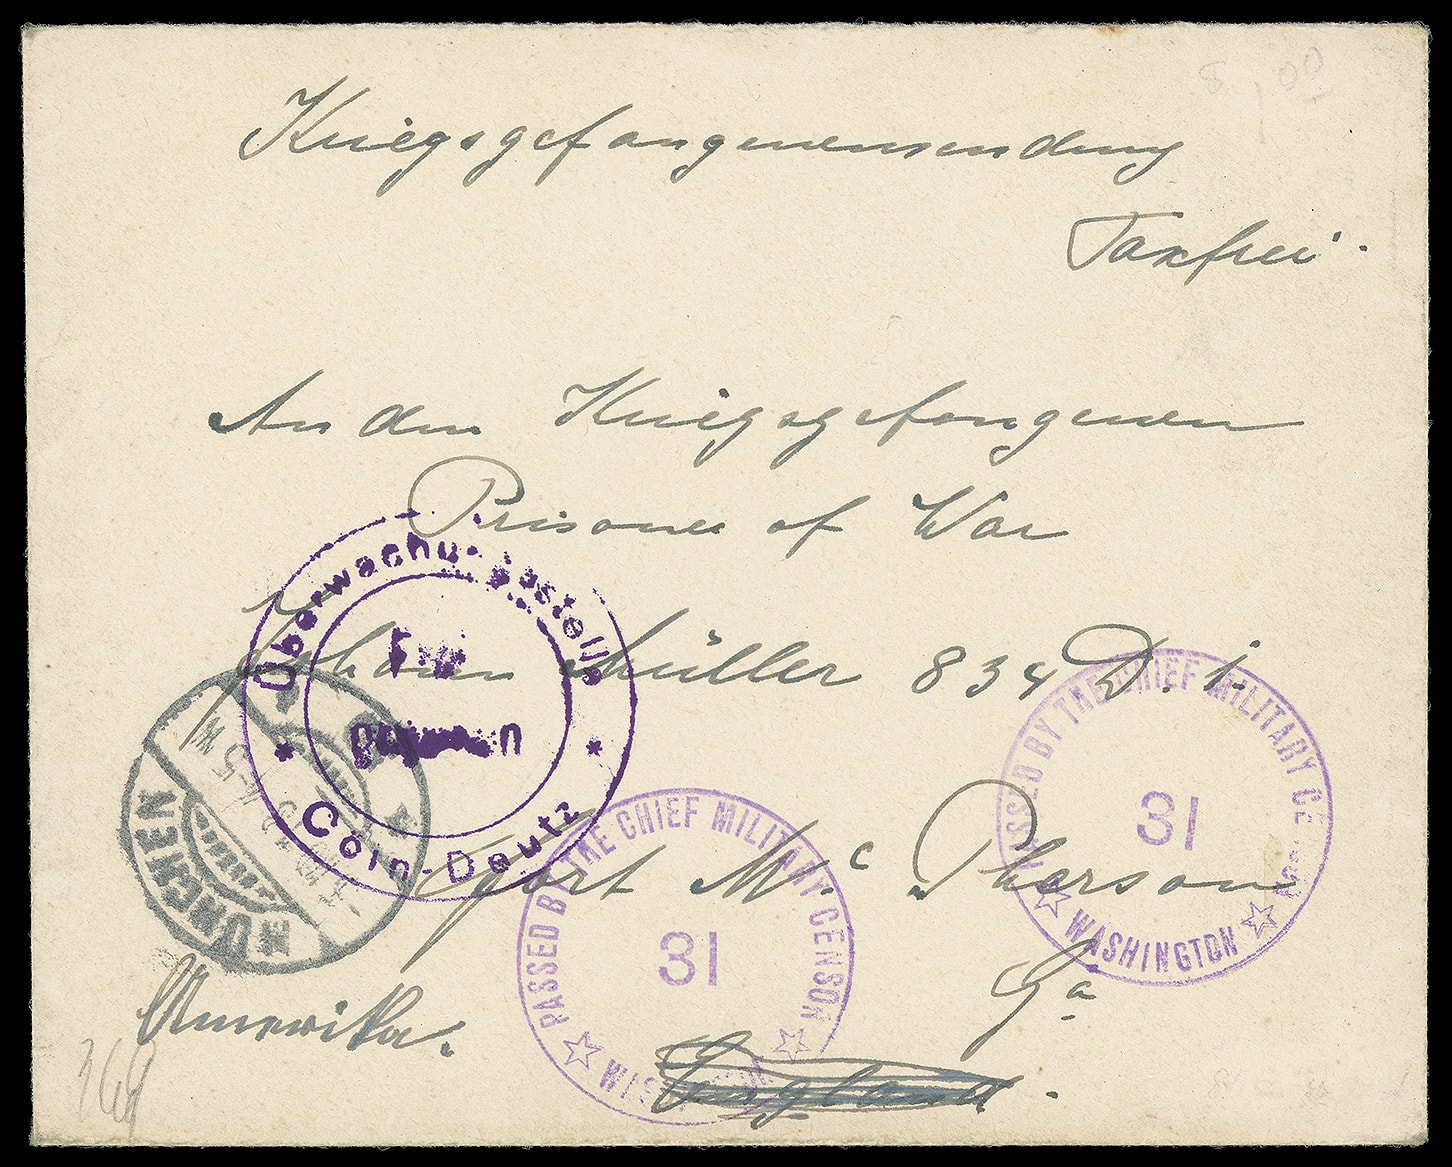 8,00
Kriegsgefangenensendung
Taxfrei.
An den Kriegsgefangenen
Prisoner of War
Johann Müller 834 D. 1.
Fort Mc Pherson
Ga
Amerika.
England.
Überwachungsstelle
Cöln-Deutz
MÜNCHEN
PASSED BY THE CHIEF MILITARY CENSOR
31
WASHINGTON
PASSED BY THE CHIEF MILITARY CENSOR
31
WASHINGTON